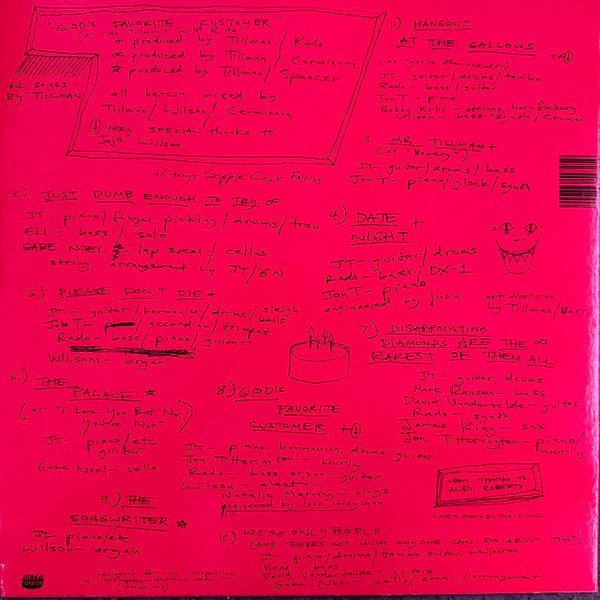 "GOD'S FAVORITE CUSTOMER"
+ produced by Tillman/Rado
∞ produced by Tillman/Cerminara
☆ produced by Tillman/Spencer
all herein mixed by
Tillman/Wilson/Cerminara
VERY SPECIAL thanks to
JoJo Wilson
ALL SONGS
BY TILLMAN
all songs Cripple Creek Fairies
1.) HANGOUT
AT THE GALLOWS
(or "you're the answer")
JT- guitar/drums/tambo
Rado- bass/guitar
Jon T- piano
Wilson- bass synth/
2. MR. TILLMAN +
(or "Bowery")
JT- guitar/drums/bass
Jon T- piano/glock/synth
3.) JUST DUMB ENOUGH TO TRY ∞
JT- piano/finger picking/drums/
ELI- bass/solo
GABE NOEL- lap steel/cellos
string arrangement by JT/GN
4.) DATE +
NIGHT
JT- guitar/drums
Rado- bass/DX-1
Jon T- piano
engineered by
art direction
by Tillman/
5.) PLEASE DON'T DIE +
JT- guitar/harmonica/drums/sleigh
bells
Jon T- accordian/trumpet
Rado- bass/piano/guitar
WILSON- organ
6.) THE
PALACE ☆
(or "I Love You But No,
You're Not")
JT- piano/etc
guitar
Gabe Noel- cello
7.) DISAPPOINTING
DIAMONDS ARE THE ∞
RAREST OF THEM ALL
JT- guitar, drums
Mark Ronson- bass
David Vandervelde- guitar
Rado- synth
James King- sax
Jon Titterington- piano/
wurly
8.) GOD'S
FAVORITE
CUSTOMER +
JT- piano, harmonica, drums, guitar
Jon Titterington- wurly
Rado- bass, organ, guitar
Wilson- electric
Natalie Mering- sings
9.) THE
SONGWRITER ☆
JT piano/etc
Wilson- organ
VERY THANKS TO
ALAN, ROBERTO
COVER PHOTO BY
10.) WE'RE ONLY PEOPLE
(AND THERE'S NOT MUCH ANYONE CAN DO ABOUT THAT)
JT- piano/drums/tambo guitar mellotron
Rado- bass
David Vandervelde- guitars
Gabe Noel- cello/steel/arrangement
apologies for any mispellings